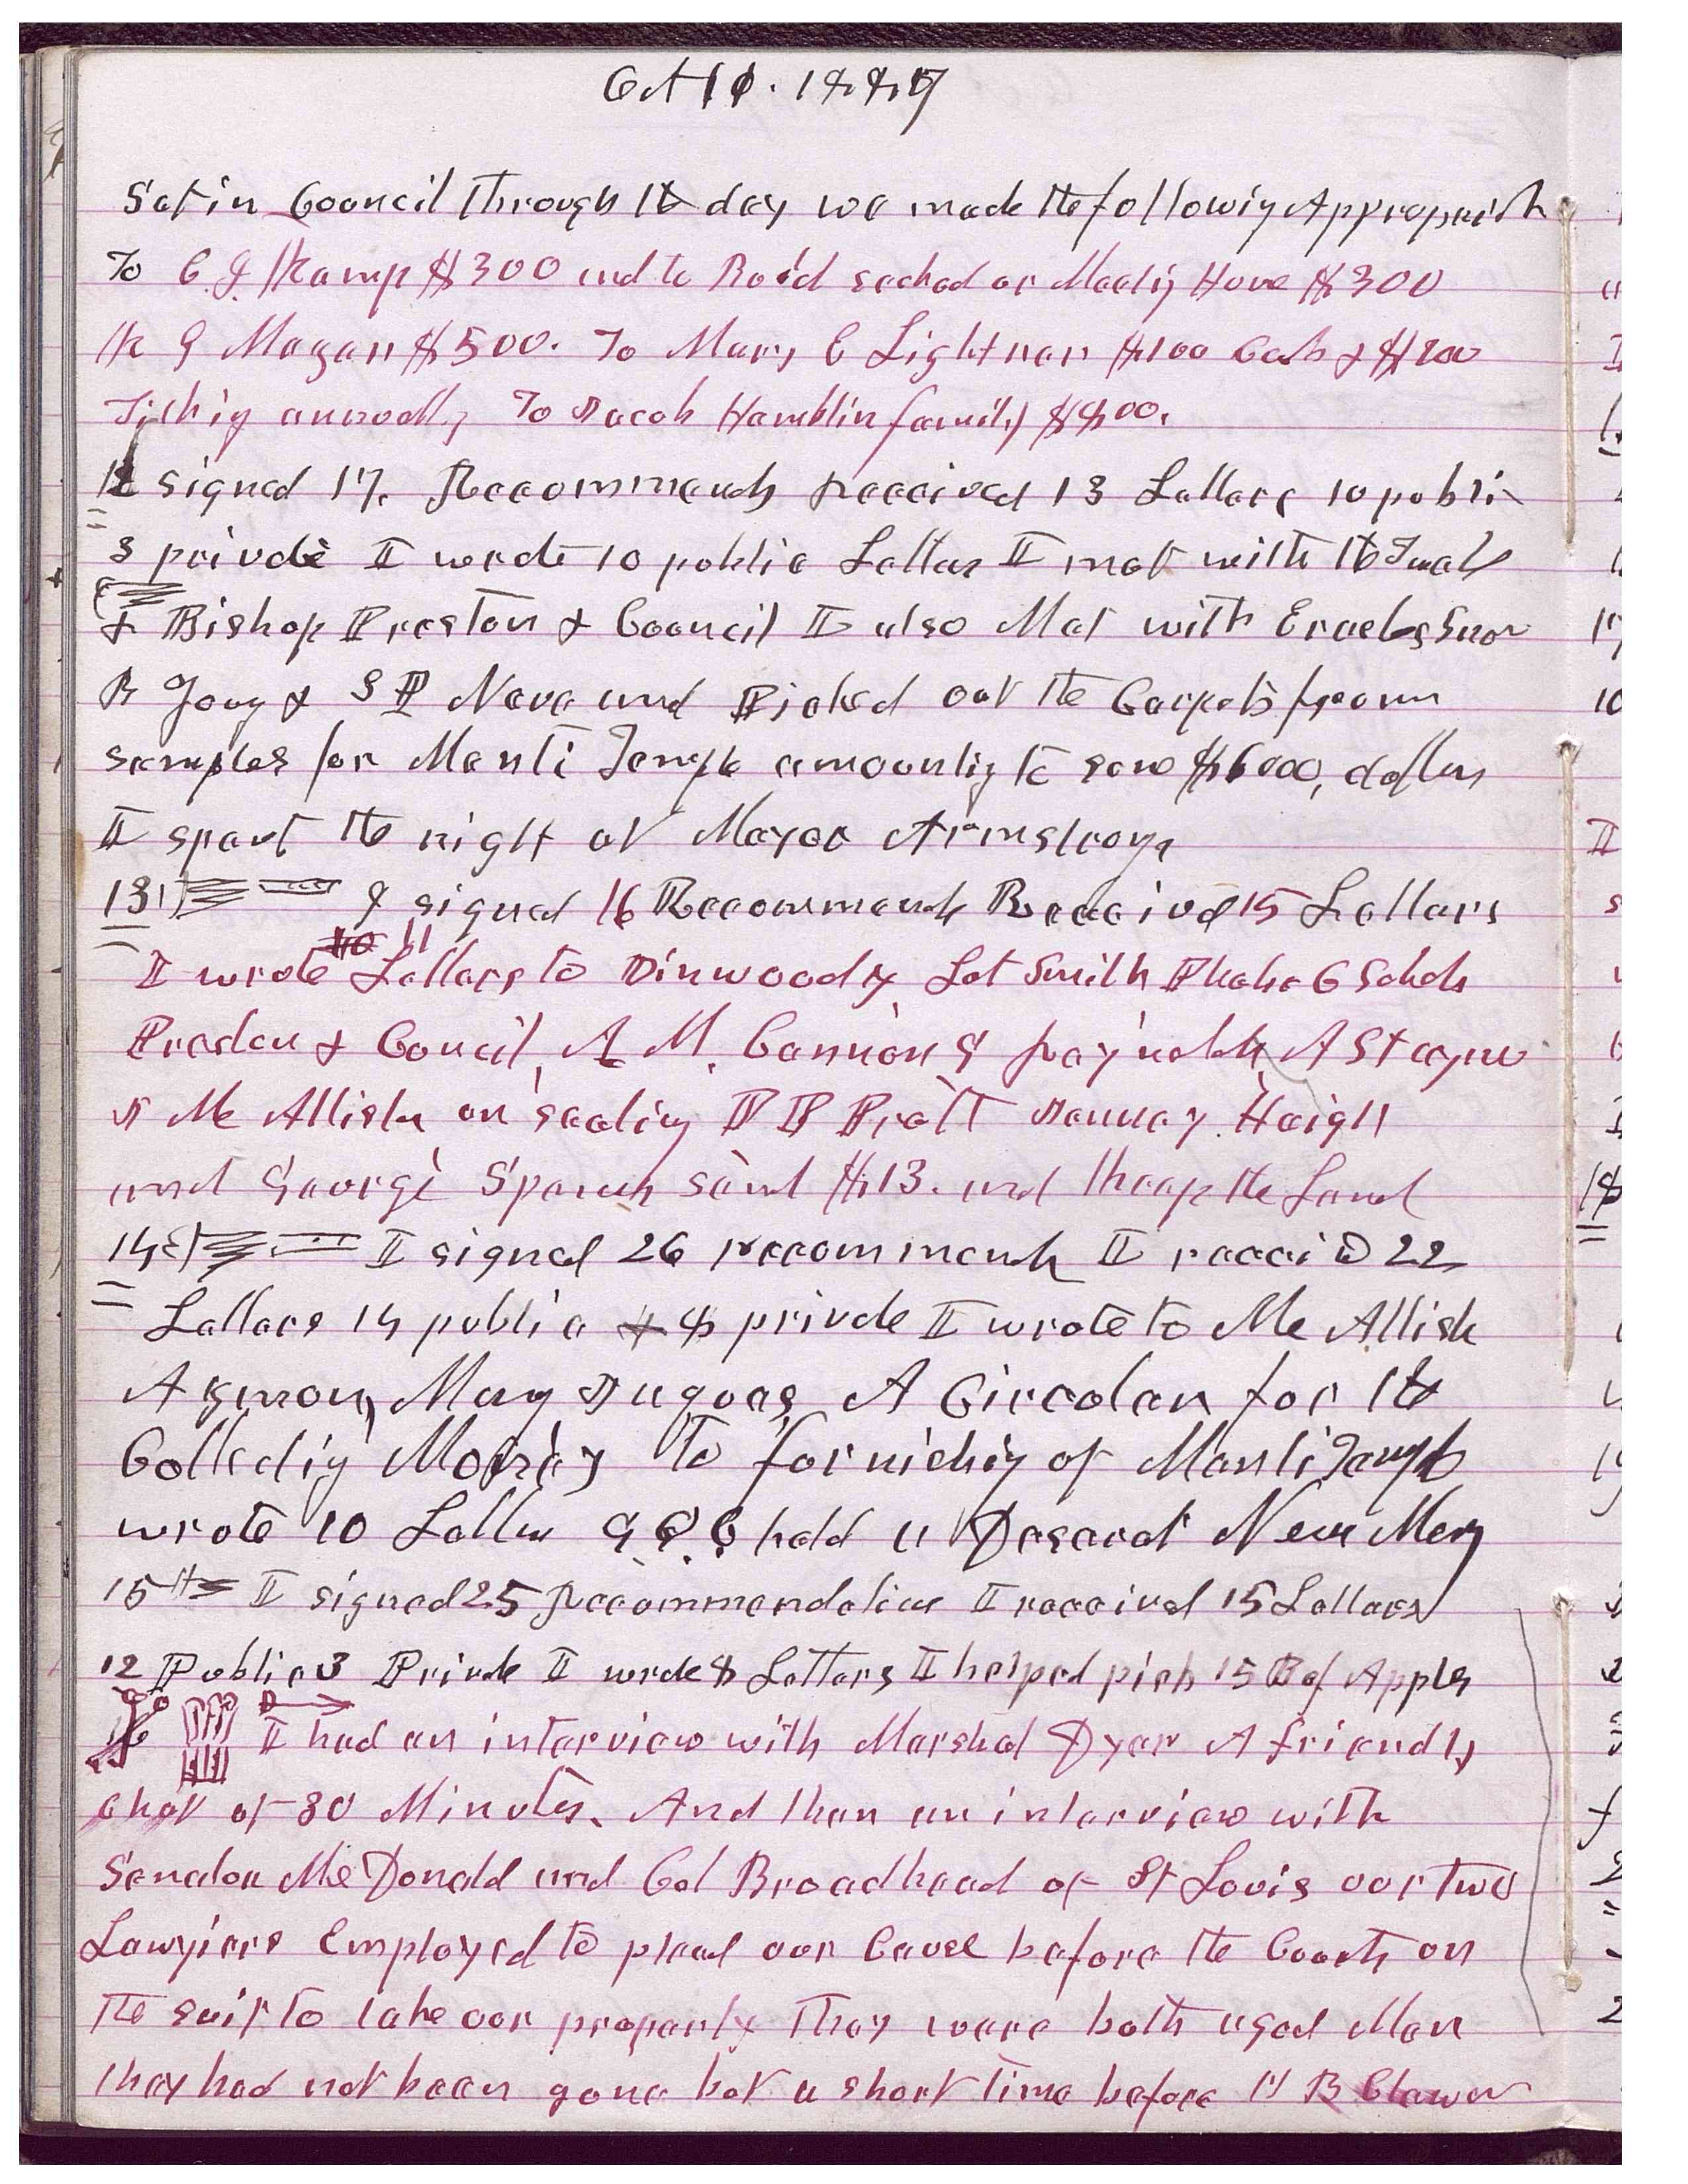 Oct 11. 1887
Sat in Council through the day we made the followig Appropriatn
To C. J. Kamp $300 and to Build School or Meetig House $300
$500. To Mary E Lightner $100 Cash & $200
Tithig annually To Jacob Hamblin family $800.
12 signed 17. Recommends Received 13 Letters 10 publi
3 private I wrote 10 public Letters I met with the Twelve
& Bishop Preston & Council I also Met with Erastus Snow
B Young & S P Neve and Picked out the Carpets from
samples for Manti Temple amountig to some $6000, dollars
I spent the night at Mayor Armstrong
13 I signed 16 Recommends Received 15 Letters
I wrote 10 11 Letters to Dinwoody Lot Smith Phebe C Scholes
Preston & Council, A M. Cannon G Raynolds A Stayner
D McAllister on sealing P P Pratt January. Haight
and George Spencer send $13. and through the Land
14 I signed 26 recommends I receivd 22
Letters 14 public 8 private I wrote to McAllist
A Kimon, Mary A Circular for the
Collectig Money To furnishig of Manti Temple
wrote 10 Letters G Q C held a Deseret News Meeg
15th I signed 25 Recommendations I received 15 Letters
12 Public 3 Private I wrote 8 Letters I helped pick 15 B of Apples
16 I had an interview with Marshal Dyer A friendly
chat of 30 Minutes. And then an interview with
Senator McDonald and Col Broadhead of St Louis our two
Lawyiers Employed to plead our Cause before the Courts on
the suit to take our property They ware both aged Men
they had not been gone but a short time before H B Clawson